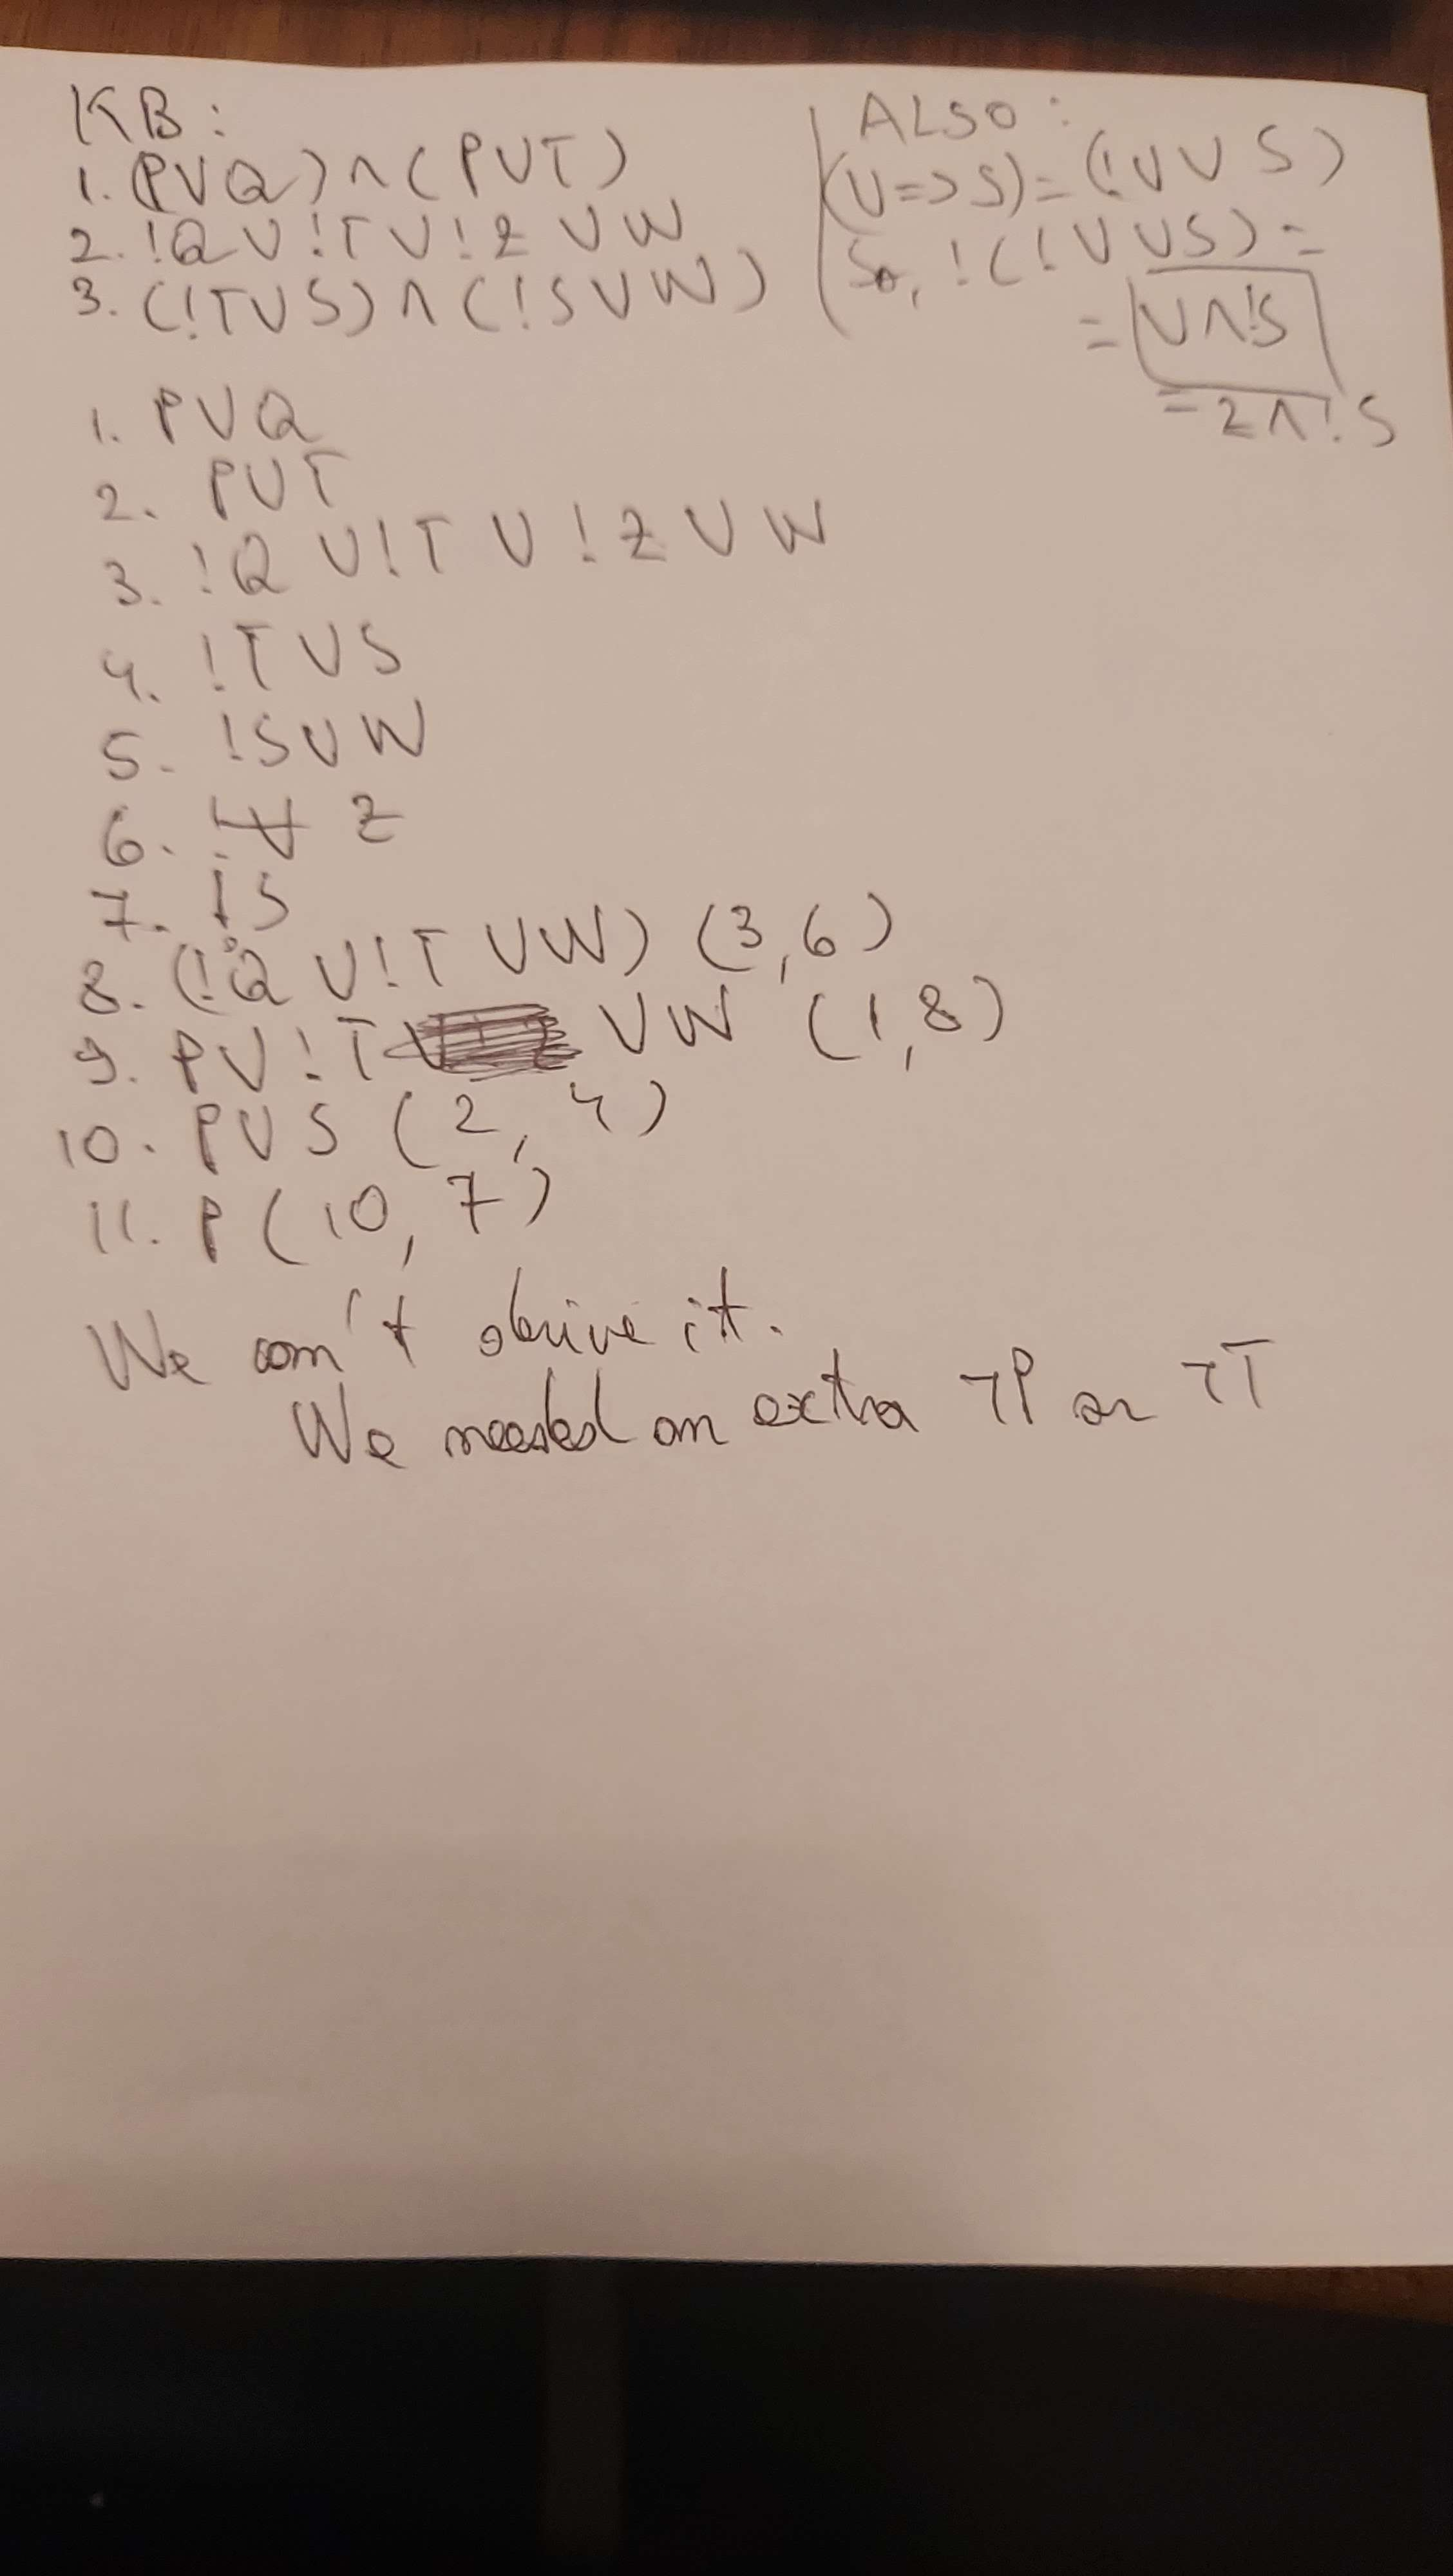 KB:
1. (PVQ) ∧ (PVT)
2. !Q V !T V !Z V W
3. (!TVS) ∧ (!S V W)
ALSO:
(U=>S) = (!U V S)
So, !(!U V S) =
= U∧!S
= Z∧!S
1. PVQ
2. PVT
3. !Q V !T V !Z V W
4. !T V S
5. !S V W
6. Z
7. !S
8. (!Q V !T V W) (3,6)
9. PV !T V W (1,8)
10. PVS (2,4)
11. P (10,7)
We can't derive it.
We needed an extra ¬P or ¬T